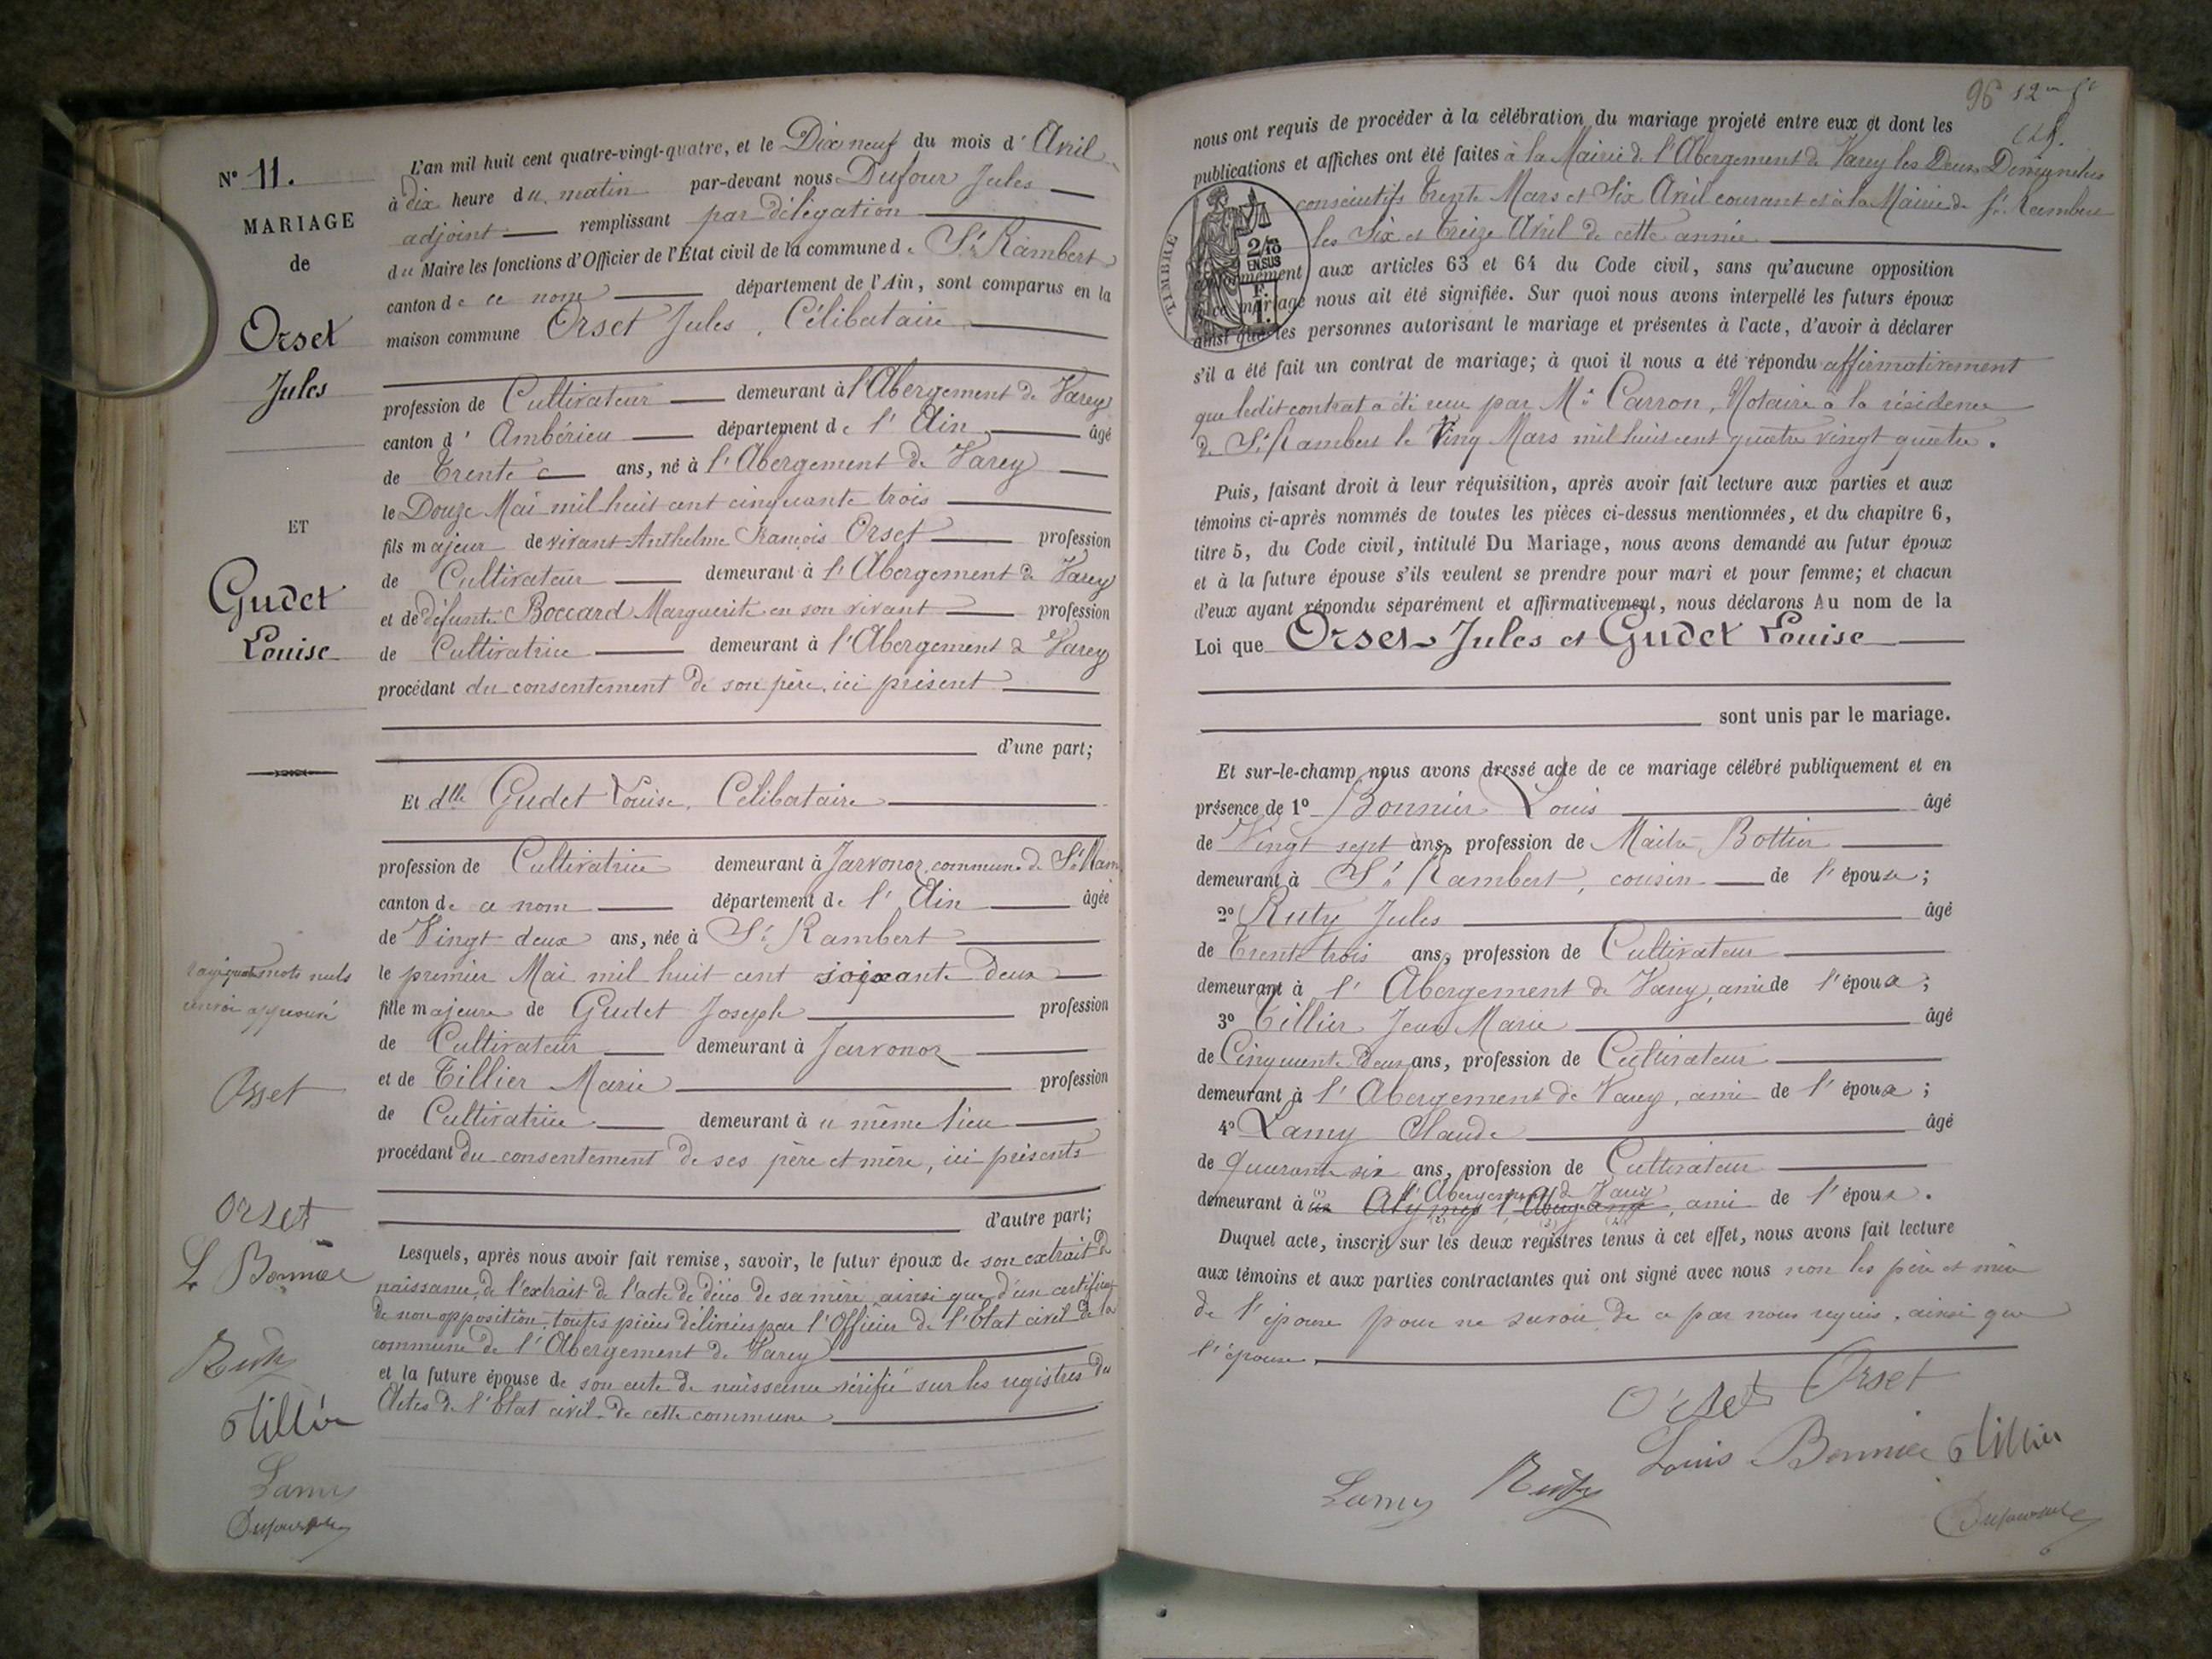 N° 11.
MARIAGE
de
Orset
Jules
ET
Gudet
Louise
rayé quatre mots nuls
renvoi approuvé
Orset
Orset
L Bonnier
Ruty
Tillier
Lamy
Dufour Jules
L'an mil huit cent quatre-vingt-quatre, et le Dix neuf du mois d'Avril
à dix heure du matin par-devant nous Dufour Jules
adjoint remplissant par délégation
du Maire les fonctions d'Officier de l'État civil de la commune de St Rambert
canton de ce nom département de l'Ain, sont comparus en la
maison commune Orset Jules, Célibataire
profession de Cultivateur demeurant à l'Abergement de Varey
canton d'Ambérieu département de l'Ain âgé
de Trente ans, né à l'Abergement de Varey
le Douze Mai mil huit cent cinquante trois
fils majeur de vivant Anthelme François Orset profession
de Cultivateur demeurant à l'Abergement de Varey
et de défunte Boccard Marguerite en son vivant profession
de Cultivatrice demeurant à l'Abergement de Varey
procédant du consentement de son père, ici présent
d'une part;
Et dlle Gudet Louise, Célibataire
profession de Cultivatrice demeurant à Javornoz, commune de St Ram
canton de ce nom département de l'Ain âgée
de Vingt deux ans, née à St Rambert
le premier Mai mil huit cent soixante deux
fille majeure de Gudet Joseph profession
de Cultivateur demeurant à Javornoz
et de Tillier Marie profession
de Cultivatrice demeurant à u même lieu
procédant du consentement de ses père et mère, ici présents
d'autre part;
Lesquels, après nous avoir fait remise, savoir, le futur époux de son extrait de
naissance, de l'extrait de l'acte de décès de sa mère ainsi que d'un certificat
de non opposition, toutes pièces délivrées par l'Officier de l'État civil de la
commune de l'Abergement de Varey
et la future épouse de son acte de naissance vérifié sur les registres des
Actes de l'État civil de cette commune
96 12
nous ont requis de procéder à la célébration du mariage projeté entre eux et dont les
publications et affiches ont été faites à la Mairie de l'Abergement de Varey les Deux Dimanches
consécutifs trente Mars et Six Avril courant et à la Mairie de St Rambert
les Six et treize Avril de cette année
TIMBRE
2/10
EN SUS
F.
1.
conformément aux articles 63 et 64 du Code civil, sans qu'aucune opposition
à ce mariage nous ait été signifiée. Sur quoi nous avons interpellé les futurs époux
ainsi que les personnes autorisant le mariage et présentes à l'acte, d'avoir à déclarer
s'il a été fait un contrat de mariage; à quoi il nous a été répondu affirmativement
que ledit contrat a été reçu par Me Carron, Notaire à la résidence
de St Rambert le Ving Mars mil huit cent quatre vingt quatre.
Puis, faisant droit à leur réquisition, après avoir fait lecture aux parties et aux
témoins ci-après nommés de toutes les pièces ci-dessus mentionnées, et du chapitre 6,
titre 5, du Code civil, intitulé Du Mariage, nous avons demandé au futur époux
et à la future épouse s'ils veulent se prendre pour mari et pour femme; et chacun
d'eux ayant répondu séparément et affirmativement, nous déclarons Au nom de la
Loi que Orset Jules et Gudet Louise
sont unis par le mariage.
Et sur-le-champ nous avons dressé acte de ce mariage célébré publiquement et en
présence de 1° Bonnier Louis âgé
de Vingt sept ans, profession de Maître Bottier
demeurant à St Rambert, cousin de l'épouse;
2° Ruty Jules âgé
de trente trois ans, profession de Cultivateur
demeurant à l'Abergement de Varey, ami de l'époux;
3° Tillier Jean Marie âgé
de Cinquante deux ans, profession de Cultivateur
demeurant à l'Abergement de Varey, ami de l'époux;
4° Lamy Claude âgé
de quarante six ans, profession de Cultivateur
l'Abergement de Varey
demeurant à , ami de l'époux.
Duquel acte, inscrit sur les deux registres tenus à cet effet, nous avons fait lecture
aux témoins et aux parties contractantes qui ont signé avec nous non les père et mère
de l'épouse pour ne savoir de ce par nous requis, ainsi que
l'épouse.
Orset Orset
Louis Bonnier Tillier
Lamy Ruty
Dufour Jules